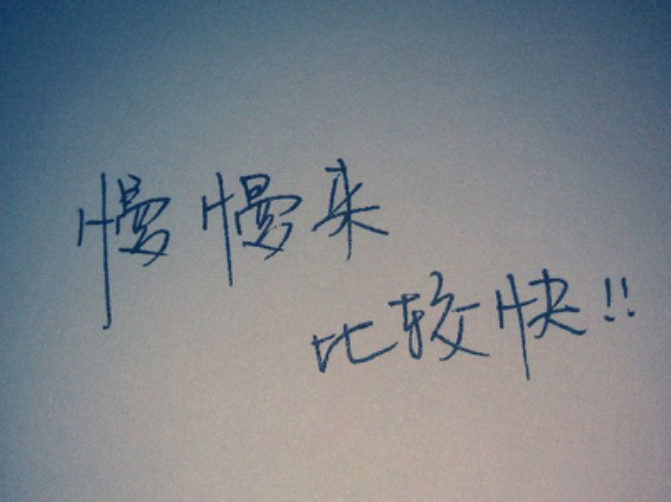 慢慢来
比较快!!